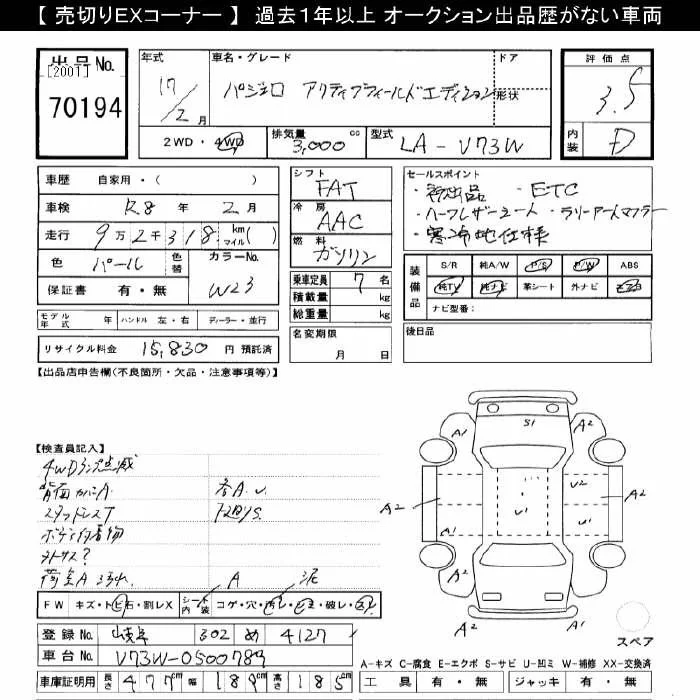 【 売切りEXコーナー 】 過去1年以上 オークション出品歴がない車両
出品No.
[2001]
70194
年式 17/2月
車名・グレード ドア形状
パジェロ アクティブフィールドエディション
2WD・4WD 排気量 3,000cc 型式 LA-V73W
評価点
3.5
内装 D
車歴 自家用・( )
車検 R8年 2月
走行 9万2千318 km マイル( )
色 パール 色替 カラーNo. W23
保証書 有・無
モデル年式 年 ハンドル 左・右 ディーラー・並行
リサイクル料金 15,830円 預託済
シフト
FAT
冷房
AAC
燃料
ガソリン
乗車定員 7名
積載量 kg
総重量 kg
名変期限
月 日
セールスポイント
・初出品 ・ETC
・ハーフレザーシート ・ラリーアートマフラー
・寒冷地仕様
装備品 S/R 純A/W P/S P/W ABS
純TV 純ナビ 革シート 外ナビ エアB
ナビ型番:
後日品
【出品店申告欄(不良箇所・欠品・注意事項等)】
【検査員記入】
4WDランプ点滅
背面カバーA 各A.U.
スタッドレスT
ボデー付着物
荷室A
A 泥
FW キズ・トビ石・割レX シート内装 コゲ・穴・汚レ・シミ・破レ・スレ
登録No. 岐阜 302 め 4127
車台No. V73W-0500789
車庫証明用 長さ 477cm 幅 189cm 高さ 185cm
A1 S1 A2
A2 U2 A2
A1 U1 U1
A2 A2
スペア
A-キズ C-腐食 E-エクボ S-サビ U-凹ミ W-補修 XX-交換済
工具 有・無 ジャッキ 有・無